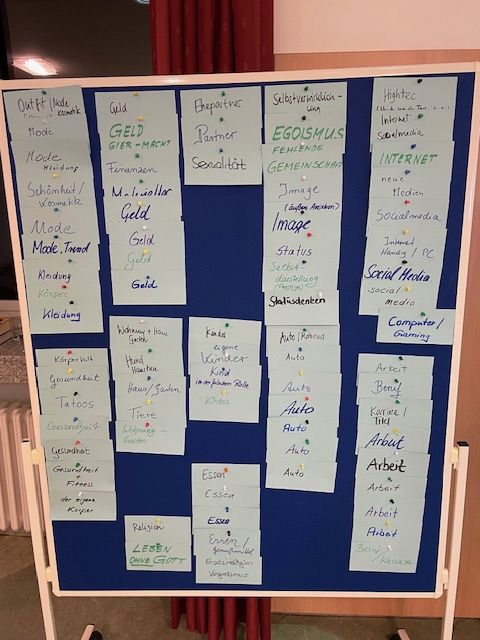 Outfit/Mode
Kosmetik
Mode
Mode
Kleidung
Schönheit/
Kosmetik
Mode
Mode, Trend
Kleidung
Körper
Kleidung
Geld
GELD
GIER-MACHT
Finanzen
Materielles
Geld
Geld
Geld
Geld
Ehepartner
Partner
Sexualität
Selbstverwirklich-
ung
EGOISMUS
FEHLENDE
GEMEINSCHAFT
Image
(äußere Ansehen)
Image
Status
Selbst-
darstellung
Statusdenken
Hightec
Internet
Socialmedia
INTERNET
neue
Medien
Socialmedia
Internet
Handy / PC
Social Media
social
media
Computer/
Gaming
Körperkult
Gesundheit
Tatoos
Gesundheit
Gesundheit
Gesundheit
+
Fitness
der eigene
Körper
Wohnung + Haus
Garten
Hund
Haustiere
Haus/Garten
Tiere
Wohnung-
Garten
Kinder
eigene
Kinder
Kind
in der falschen Rolle
Kinder
Auto/Motorrad
Auto
Auto
Auto
Auto
Auto
Auto
Arbeit
Beruf
Karriere/
Titel
Arbeit
Arbeit
Arbeit
Arbeit
Arbeit
Beruf/
Karriere
Religion
LEBEN
OHNE GOTT
Essen
Essen
Essen
Essen/
Genußmittel